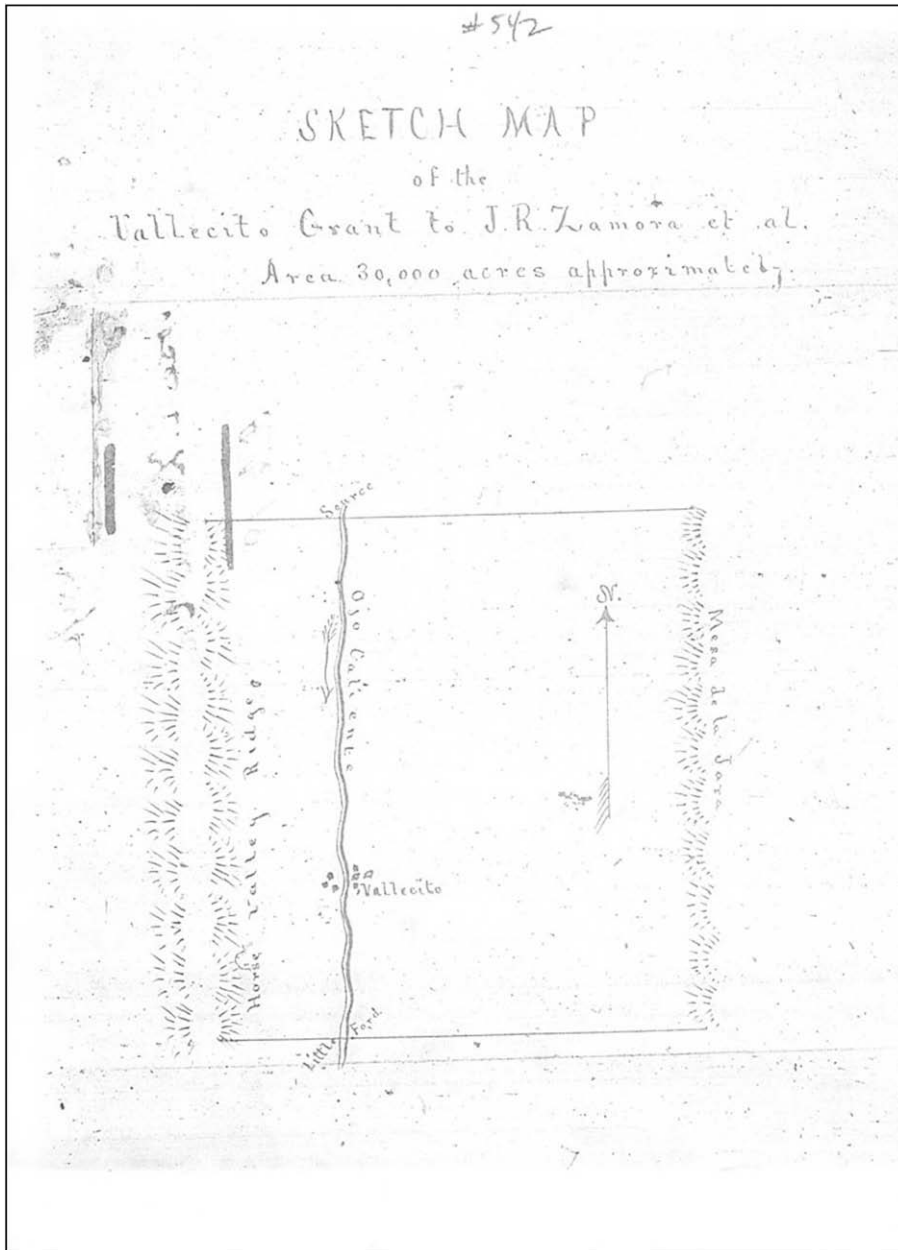 #542
SKETCH MAP
of the
Vallecito Grant to J.R. Zamora et al.
Area 30,000 acres approximately.
Source
N.
Ojo Caliente
Mesa de la Jara
Horse Valley Ridges
Vallecito
Little Ford